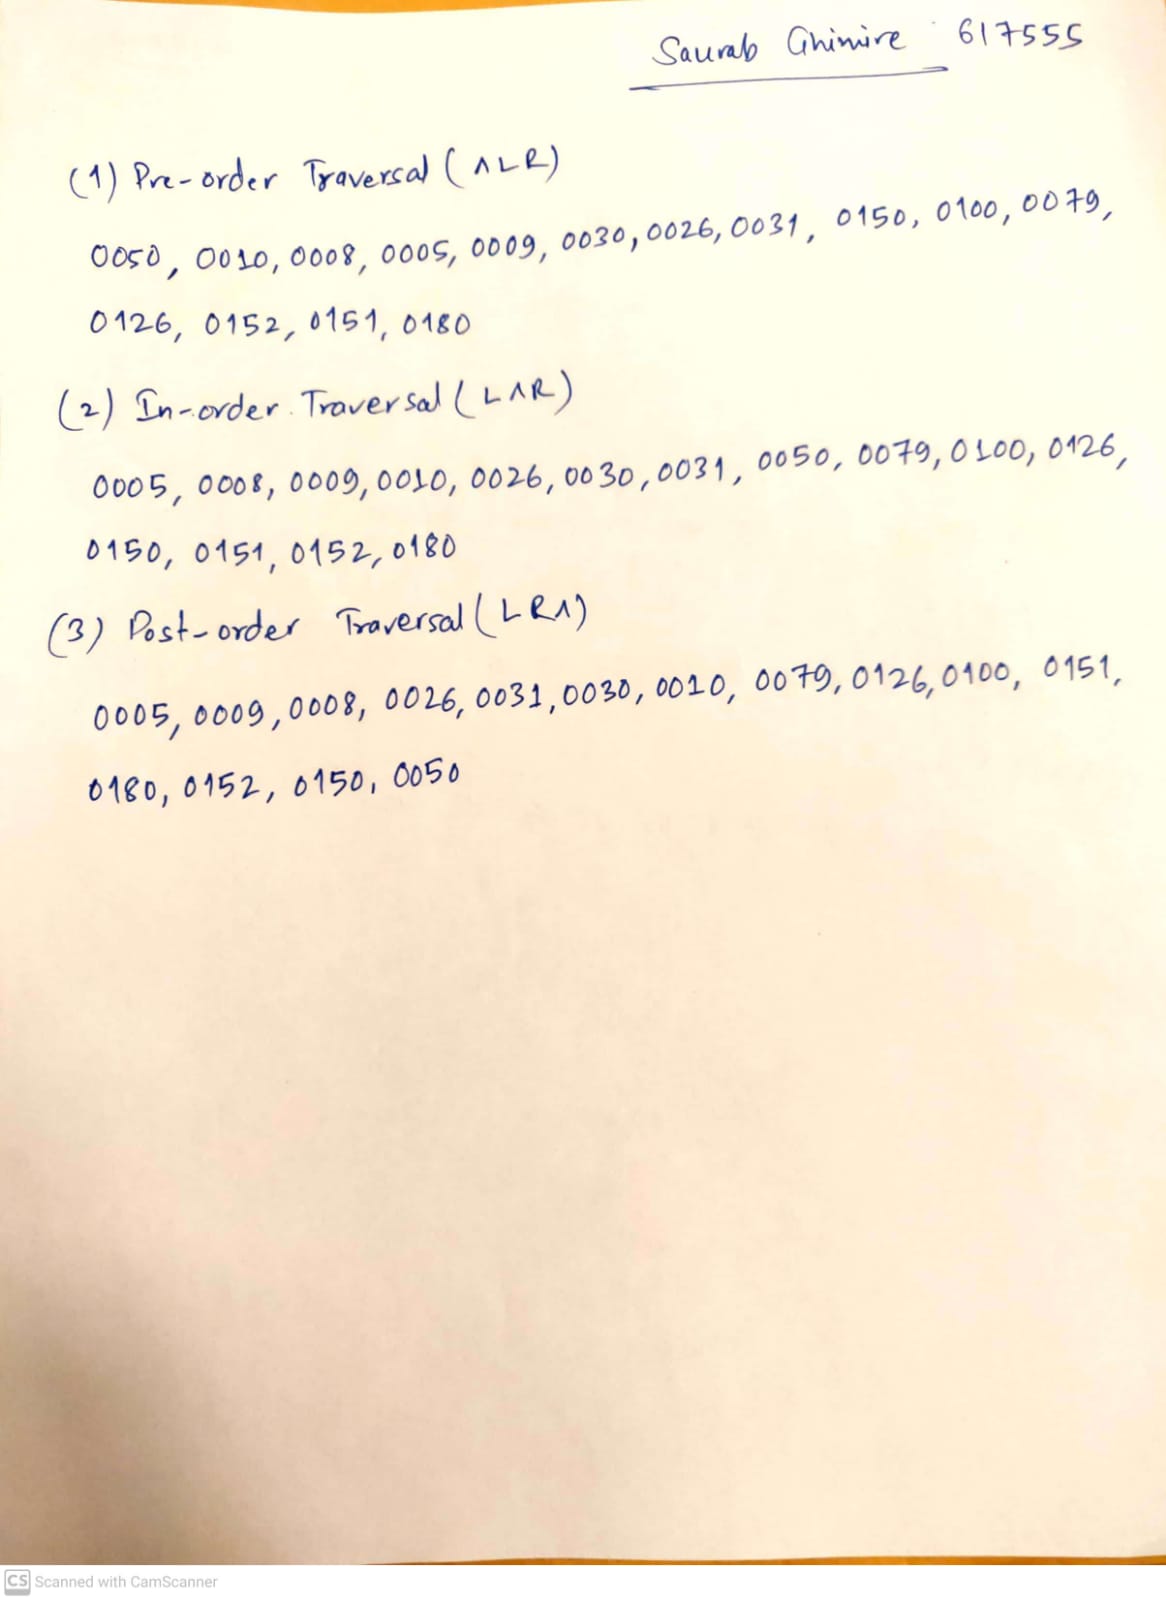 Saurab Ghimire 617555
(1) Pre-order Traversal (ΛLR)
0050, 0010, 0008, 0005, 0009, 0030, 0026, 0031, 0150, 0100, 0079,
0126, 0152, 0151, 0180
(2) In-order Traversal (LΛR)
0005, 0008, 0009, 0010, 0026, 0030, 0031, 0050, 0079, 0100, 0126,
0150, 0151, 0152, 0180
(3) Post-order Traversal (LRΛ)
0005, 0009, 0008, 0026, 0031, 0030, 0010, 0079, 0126, 0100, 0151,
0180, 0152, 0150, 0050
CS Scanned with CamScanner